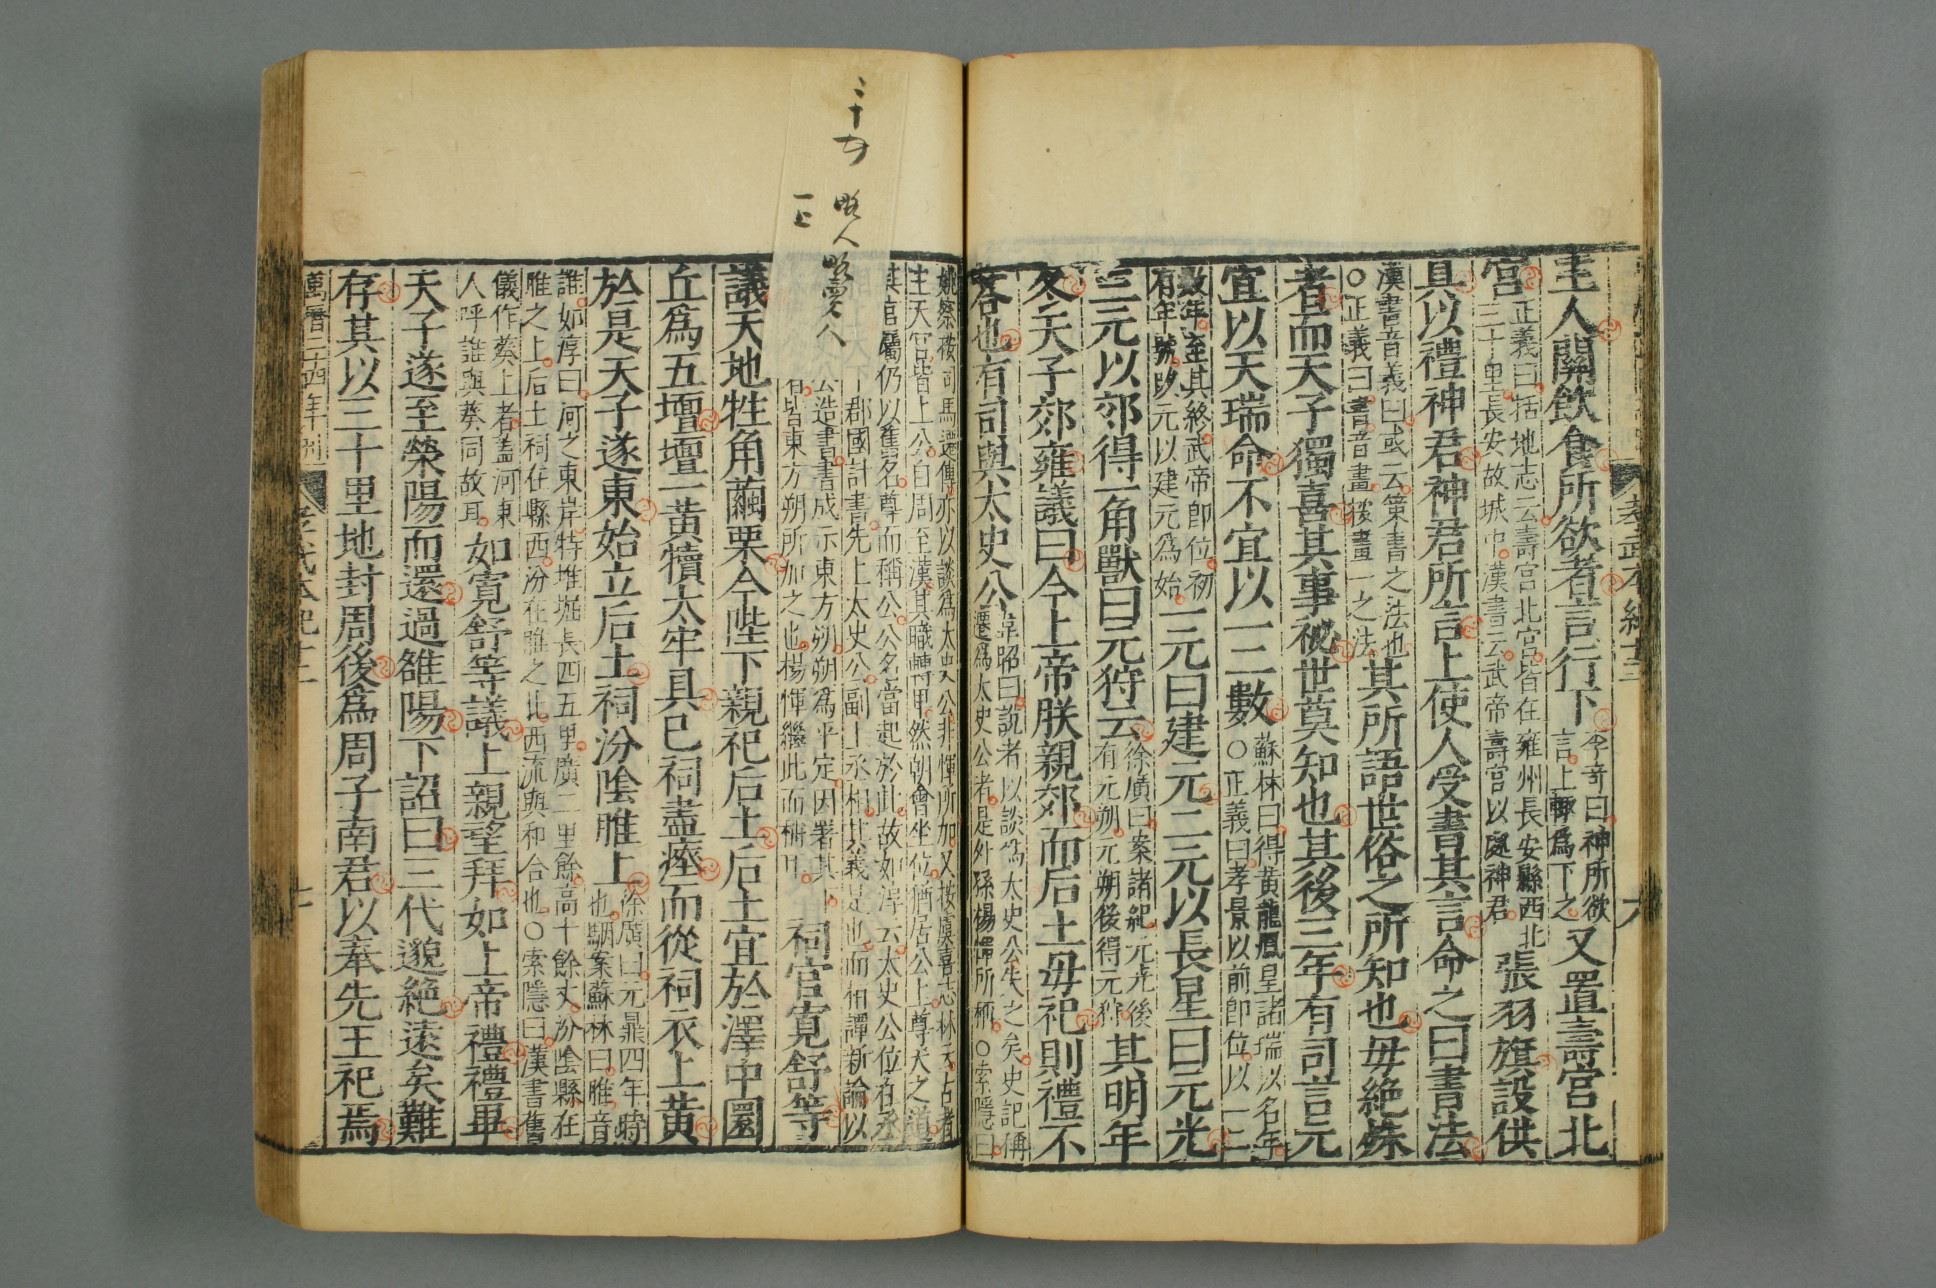 孝武本紀十二
六
主人關飲食所欲者言行下李奇曰神所欲言上輒爲下之又置壽宮北
宮正義曰括地志云壽宮北宮皆在雍州長安縣西北三十里長安故城中漢書云武帝壽宮以處神君張羽旗設供
具以禮神君神君所言上使人受書其言命之曰書法
漢書音義曰或云策書之法也○正義曰書音畫按畫一之法其所語世俗之所知也毋絶殊
者而天子獨喜其事祕世莫知也其後三年有司言元
宜以天瑞命不宜以一二數蘇林曰得黃龍鳳皇諸瑞以名年○正義曰孝景以前即位以一二
數年至其終武帝即位初有年號改元以建元爲始一元曰建元二元以長星曰元光
三元以郊得一角獸曰元狩云徐廣曰案諸紀元光後有元朔元朔後得元狩其明年
冬天子郊雍議曰今上帝朕親郊而后土毋祀則禮不
荅也有司與太史公韋昭曰說者以談爲太史公失之矣史記稱遷爲太史公者是外孫楊惲所稱○索隱曰
姚察按司馬遷傳亦以談爲太史公非惲所加又按虞喜志林云古者主天官皆上公自周至漢其職轉卑然朝會坐位猶居公上尊天之道
其官屬仍以舊名尊而稱公公名當起於此故如淳云太史公位在丞
郡國計書先上太史公副上丞相其義是也而桓譚新論以
公造書書成示東方朔朔爲平定因署其下
者皆東方朔所加之也楊惲繼此而稱耳祠官寬舒等
議天地牲角繭栗今陛下親祀后土后土宜於澤中圜
丘爲五壇壇一黃犢太牢具已祠盡瘞而從祠衣上黃
於是天子遂東始立后土祠汾陰脽上徐廣曰元鼎四年時也駰案蘇林曰脽音
誰如淳曰河之東岸特堆堀長四五里廣二里餘高十餘丈汾陰縣在脽之上后土祠在縣西汾在脽之北西流與和合也○索隱曰漢書舊
儀作葵上者蓋河東人呼誰與葵同故耳如寬舒等議上親望拜如上帝禮禮畢
天子遂至滎陽而還過雒陽下詔曰三代邈絶遠矣難
存其以三十里地封周後爲周子南君以奉先王祀焉
萬曆二十四年刊
孝武本紀十二
三十
一上